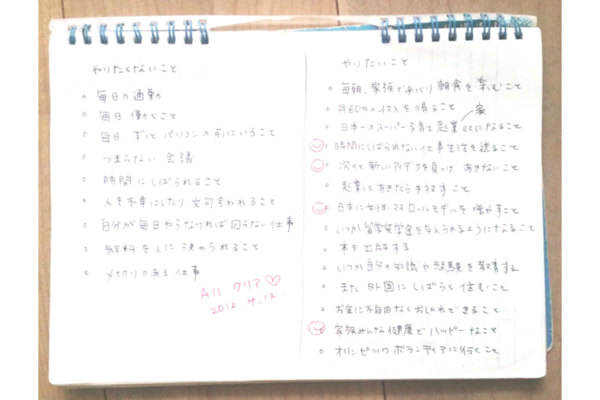 やりたくないこと
○ 毎日の通勤
○ 毎日働くこと
○ 毎日、ずっとパソコンの前にいること
○ つまらない会議
○ 時間にしばられること
○ 人を不幸にしたり文句言われること
○ 自分が毎日やらなければ回らない仕事
○ 給料を人に決められること
○ メキリのある仕事
All クリア♡
2012.4.12.
やりたいこと
○ 毎朝、家族でゆっくり朝食を楽しむこと
○ 月80万の収入を得ること
家
○ 日本一のスーパー子育て起業ママになること
○ 時間にしばられない仕事生活を送ること
○ 次々と新しいアイデアを見つけ、あきないこと
○ 起業してあきたら手放すこと
○ 日本に女性ママロールモデルを増やすこと
○ いつか留学奨学金を与えられるようになること
○ 本を出版する
○ いつか自分の知識や経験を教育する
○ また外国にしばらく住むこと
○ お金に不自由なくおしゃれできること
○ 家族みんな健康でハッピーなこと
○ オリンピックボランティアに行くこと